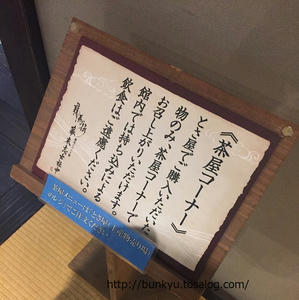 《茶屋コーナー》
とき屋でご購入いただいた
物のみ、茶屋コーナーで
お召し上がりいただけます。
館内では持ち込みによる
飲食はご遠慮ください。
レジでご注文ください
http://bunkyu.tosalog.com/